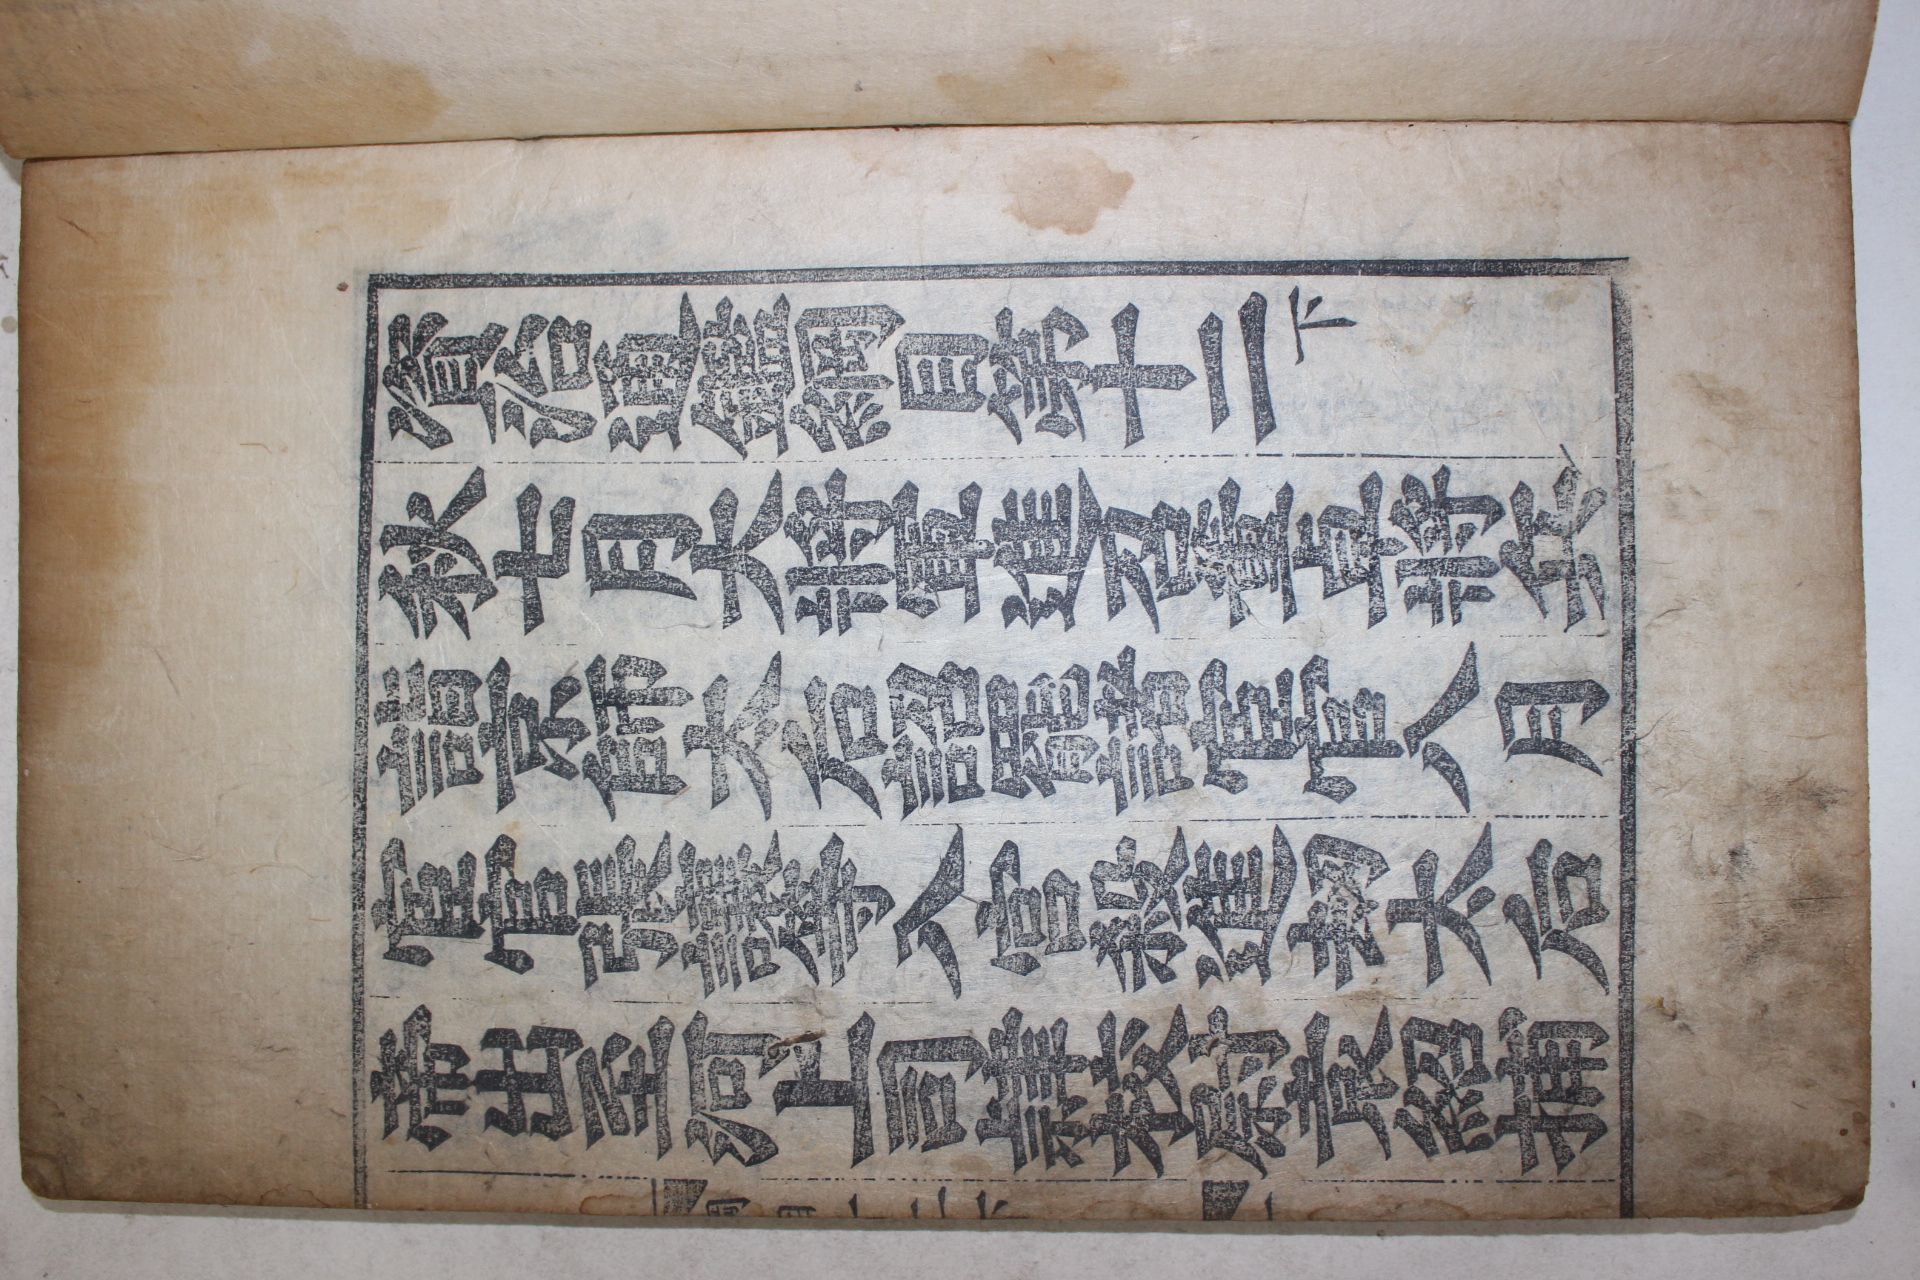 資治通鑑綱目第十二下
秋七月大將軍進召董卓將兵
詣京師太后詔罷諸宦官八月
宦官張讓等入宮殺進劫太后
帝出至河上司隷校尉袁紹捕